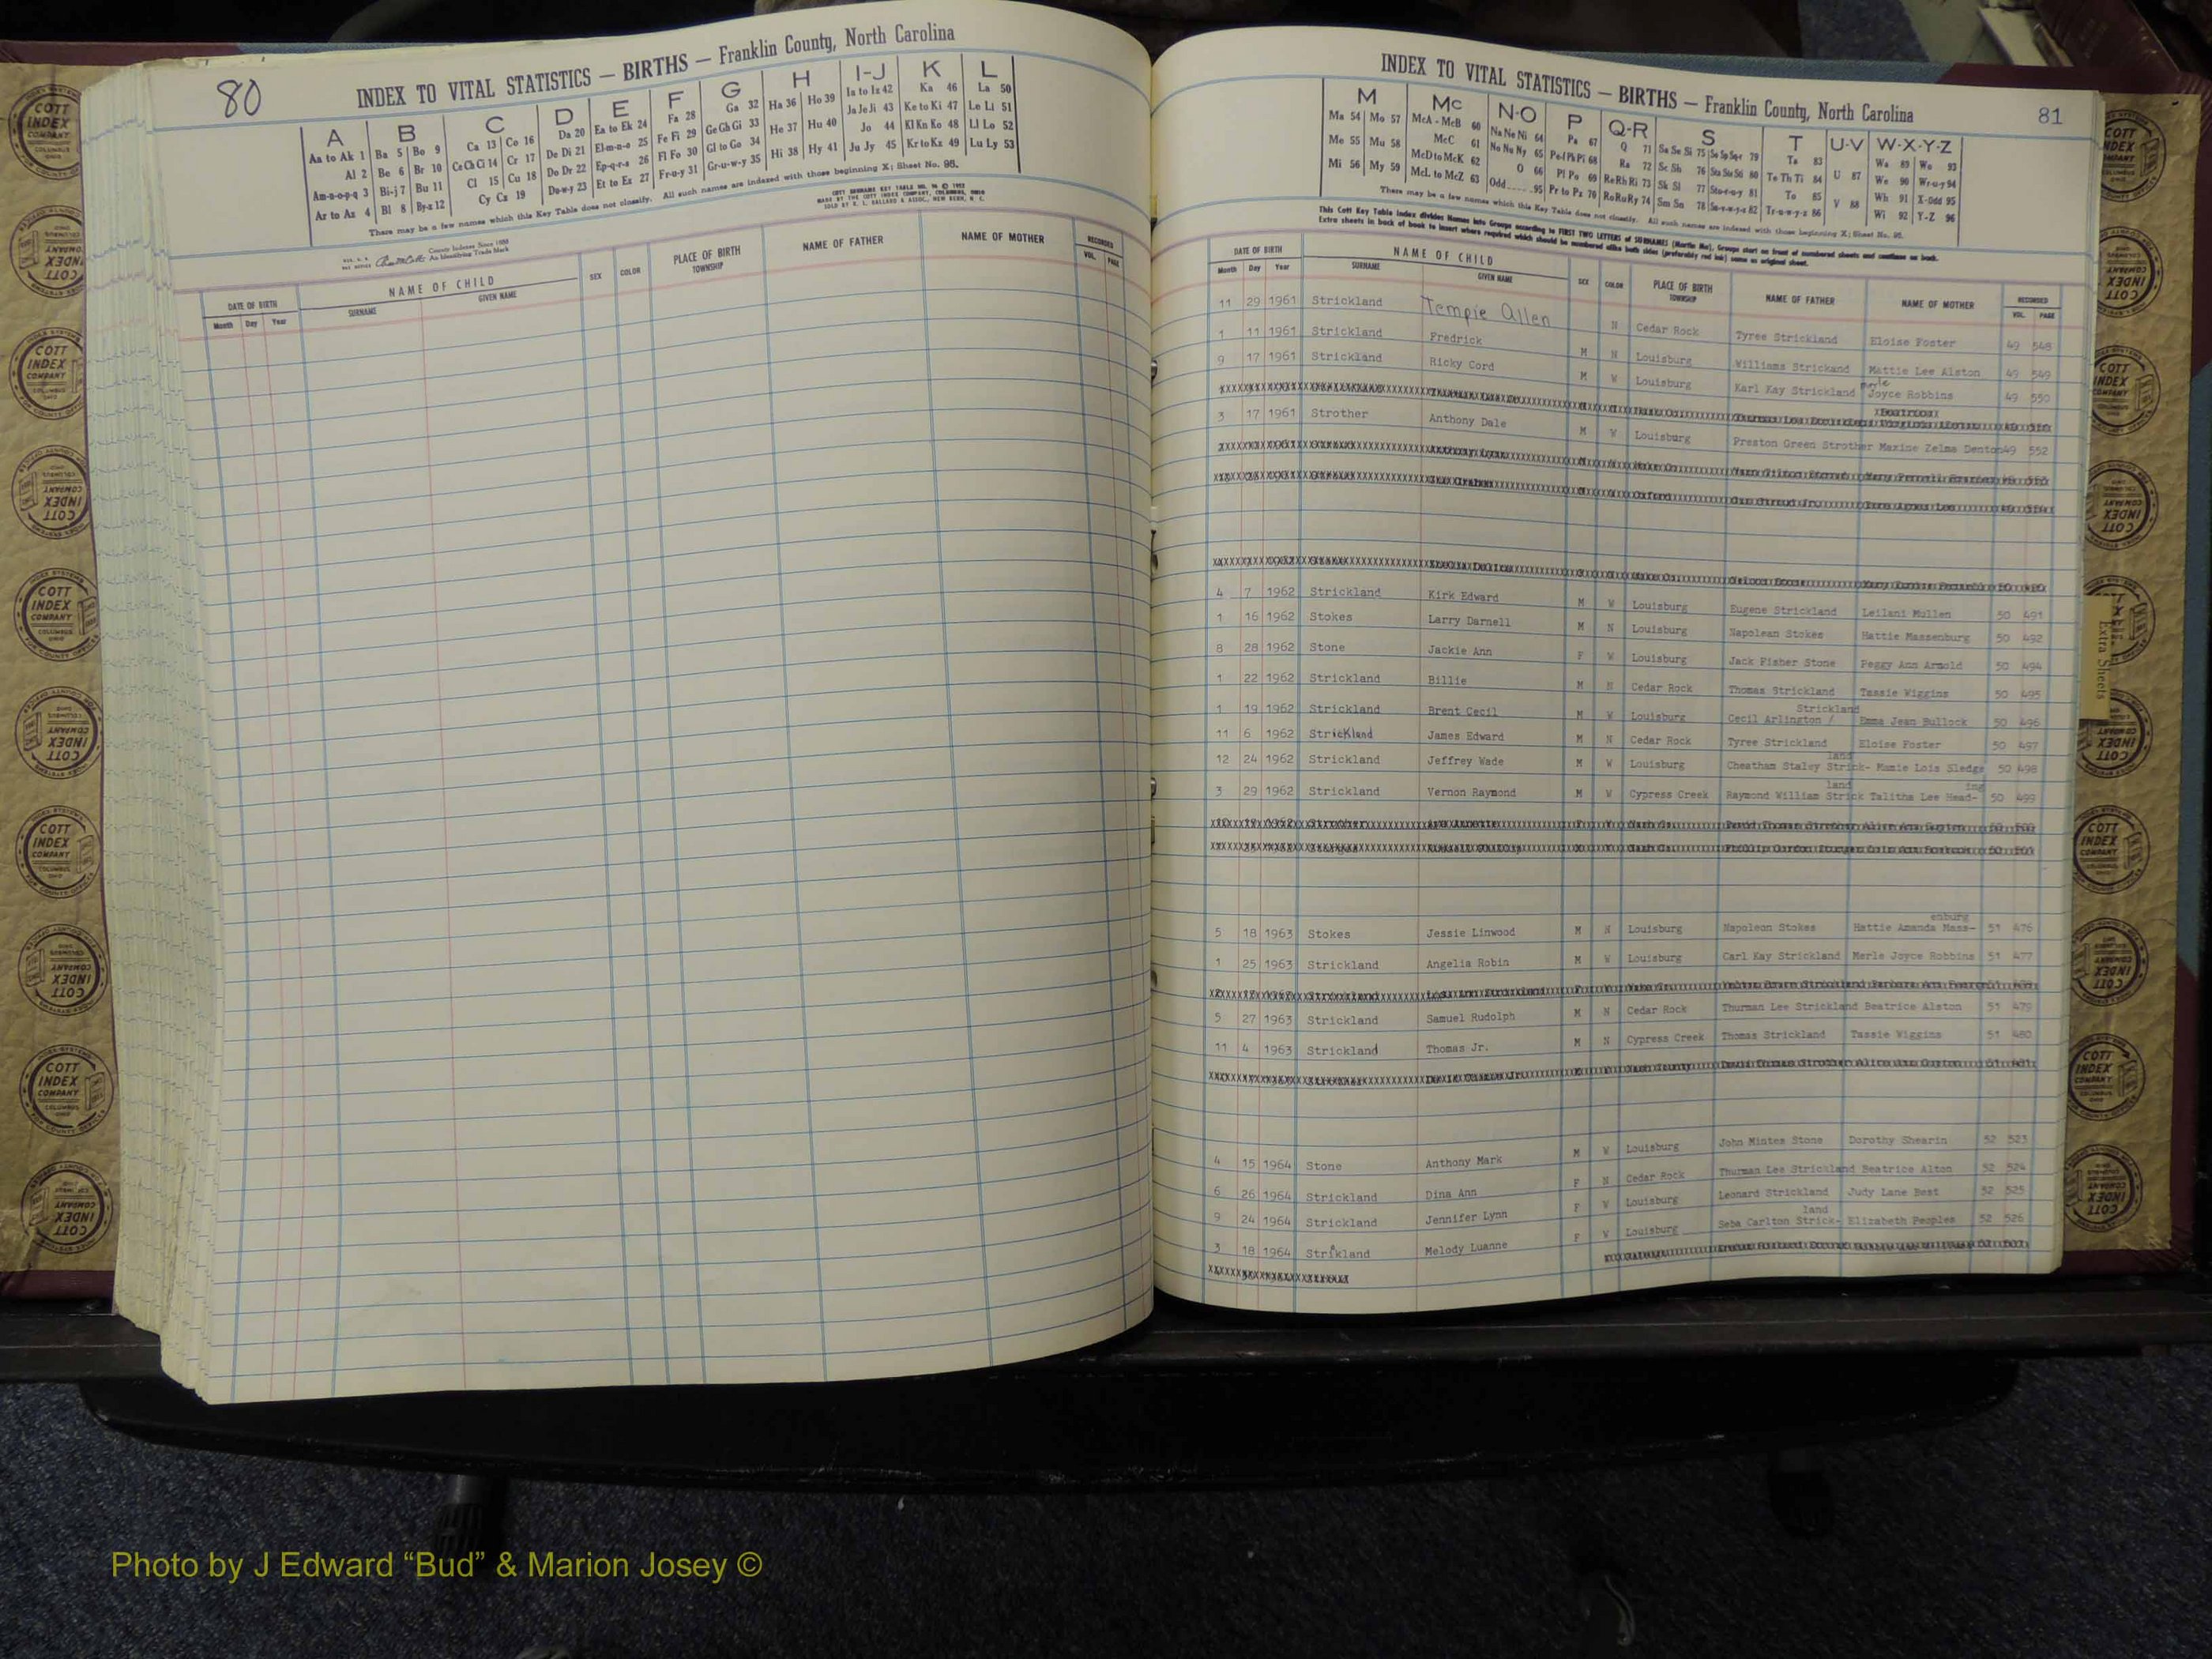 80
INDEX TO VITAL STATISTICS — BIRTHS — Franklin County, North Carolina
A B C D E F G H I-J K L
Aa to Ak 1 Ba 5 Bo 9 Ca 13 Co 16 Da 20 Ea to Ek 24 Fa 28 Ga 32 Ha 36 Ho 39 Ia to Iz 42 Ka 46 La 50
Al 2 Be 6 Br 10 Ce Ch Ci 14 Cr 17 De Di 21 El-m-n-o 25 Fe Fi 29 Ge Gh Gi 33 He 37 Hu 40 Ja Je Ji 43 Ke to Ki 47 Le Li 51
Am-n-o-p-q 3 Bi-j 7 Bu 11 Cl 15 Cu 18 Do Dr 22 Ep-q-r-s 26 Fl Fo 30 Gl to Go 34 Hi 38 Hy 41 Jo 44 Kl Kn Ko 48 Ll Lo 52
Ar to Az 4 Bl 8 By-z 12 Cy Cz 19 Du-w-y 23 Et to Ez 27 Fr-u-y 31 Gr-u-w-y 35 Ju Jy 45 Kr to Kz 49 Lu Ly 53
There may be a few names which this Key Table does not classify. All such names are indexed with those beginning X; Sheet No. 96.
County Indexes Since 1888
An Identifying Trade Mark
DATE OF BIRTH NAME OF CHILD SEX COLOR PLACE OF BIRTH TOWNSHIP NAME OF FATHER NAME OF MOTHER RECORDED
Month Day Year SURNAME GIVEN NAME VOL. PAGE
INDEX TO VITAL STATISTICS — BIRTHS — Franklin County, North Carolina
81
M Mc N-O P Q-R S T U-V W-X-Y-Z
Ma 54 Mo 57 McA - McB 60 Na Ne Ni 64 Pa 67 Q 71 Sa Se Si 75 So Sp Sq-r 79 Ta 83 U 87 Wa 89 Wo 93
Me 55 Mu 58 McC 61 No Nu Ny 65 Pe-f Ph Pi 68 Ra 72 Sc Sh 76 Sta Ste Sti 80 Te Th Ti 84 We 90 Wr-u-y 94
Mi 56 My 59 McD to McK 62 O 66 Pl Po 69 Re Rh Ri 73 Sk Sl 77 Sto-r-u-y 81 To 85 V 88 Wh 91 X-Odd 95
McL to McZ 63 Odd 95 Pr to Pz 70 Ro Ru Ry 74 Sm Sn 78 Su-v-w-y-z 82 Tr-u-w-y-z 86 Wi 92 Y-Z 96
There may be a few names which this Key Table does not classify. All such names are indexed with those beginning X; Sheet No. 96.
This Cott Key Table Index divides Names into Groups according to FIRST TWO LETTERS of SURNAMES (Martin Ma), Groups start on front of numbered sheets and continue on back.
Extra sheets in back of book to insert where required which should be numbered alike both sides (preferably red ink) same as original sheet.
DATE OF BIRTH NAME OF CHILD SEX COLOR PLACE OF BIRTH TOWNSHIP NAME OF FATHER NAME OF MOTHER RECORDED
Month Day Year SURNAME GIVEN NAME VOL. PAGE
11 29 1961 Strickland Tempie Allen N Cedar Rock Tyree Strickland Eloise Foster 49 548
1 11 1961 Strickland Fredrick M N Louisburg Williams Strickand Mattie Lee Alston 49 549
9 17 1961 Strickland Ricky Cord M W Louisburg Karl Kay Strickland Joyce Robbins 49 550
3 17 1961 Strother Anthony Dale M W Louisburg Preston Green Strother Maxine Zelma Denton 49 552
4 7 1962 Strickland Kirk Edward M W Louisburg Eugene Strickland Leilani Mullen 50 491
1 16 1962 Stokes Larry Darnell M N Louisburg Napolean Stokes Hattie Massenburg 50 492
8 28 1962 Stone Jackie Ann F W Louisburg Jack Fisher Stone Peggy Ann Arnold 50 494
1 22 1962 Strickland Billie M N Cedar Rock Thomas Strickland Tassie Wiggins 50 495
Strickland
1 19 1962 Strickland Brent Cecil M W Louisburg Cecil Arlington / Emma Jean Bullock 50 496
11 6 1962 Strickland James Edward M N Cedar Rock Tyree Strickland Eloise Foster 50 497
land
12 24 1962 Strickland Jeffrey Wade M W Louisburg Cheatham Staley Strick- Mamie Lois Sledge 50 498
land ing
3 29 1962 Strickland Vernon Raymond M W Cypress Creek Raymond William Strick Talitha Lee Head- 50 499
enburg
5 18 1963 Stokes Jessie Linwood M N Louisburg Napoleon Stokes Hattie Amanda Mass- 51 476
1 25 1963 Strickland Angelia Robin M W Louisburg Carl Kay Strickland Merle Joyce Robbins 51 477
5 27 1963 Strickland Samuel Rudolph M N Cedar Rock Thurman Lee Strickland Beatrice Alston 51 479
11 4 1963 Strickland Thomas Jr. M N Cypress Creek Thomas Strickland Tassie Wiggins 51 480
4 15 1964 Stone Anthony Mark M W Louisburg John Mintes Stone Dorothy Shearin 52 523
6 26 1964 Strickland Dina Ann F N Cedar Rock Thurman Lee Strickland Beatrice Alton 52 524
9 24 1964 Strickland Jennifer Lynn F W Louisburg Leonard Strickland Judy Lane Best 52 525
land
3 18 1964 Strikland Melody Luanne F W Louisburg Seba Carlton Strick- Elizabeth Peoples 52 526
Extra Sheets
COTT INDEX COMPANY
Photo by J Edward “Bud” & Marion Josey ©